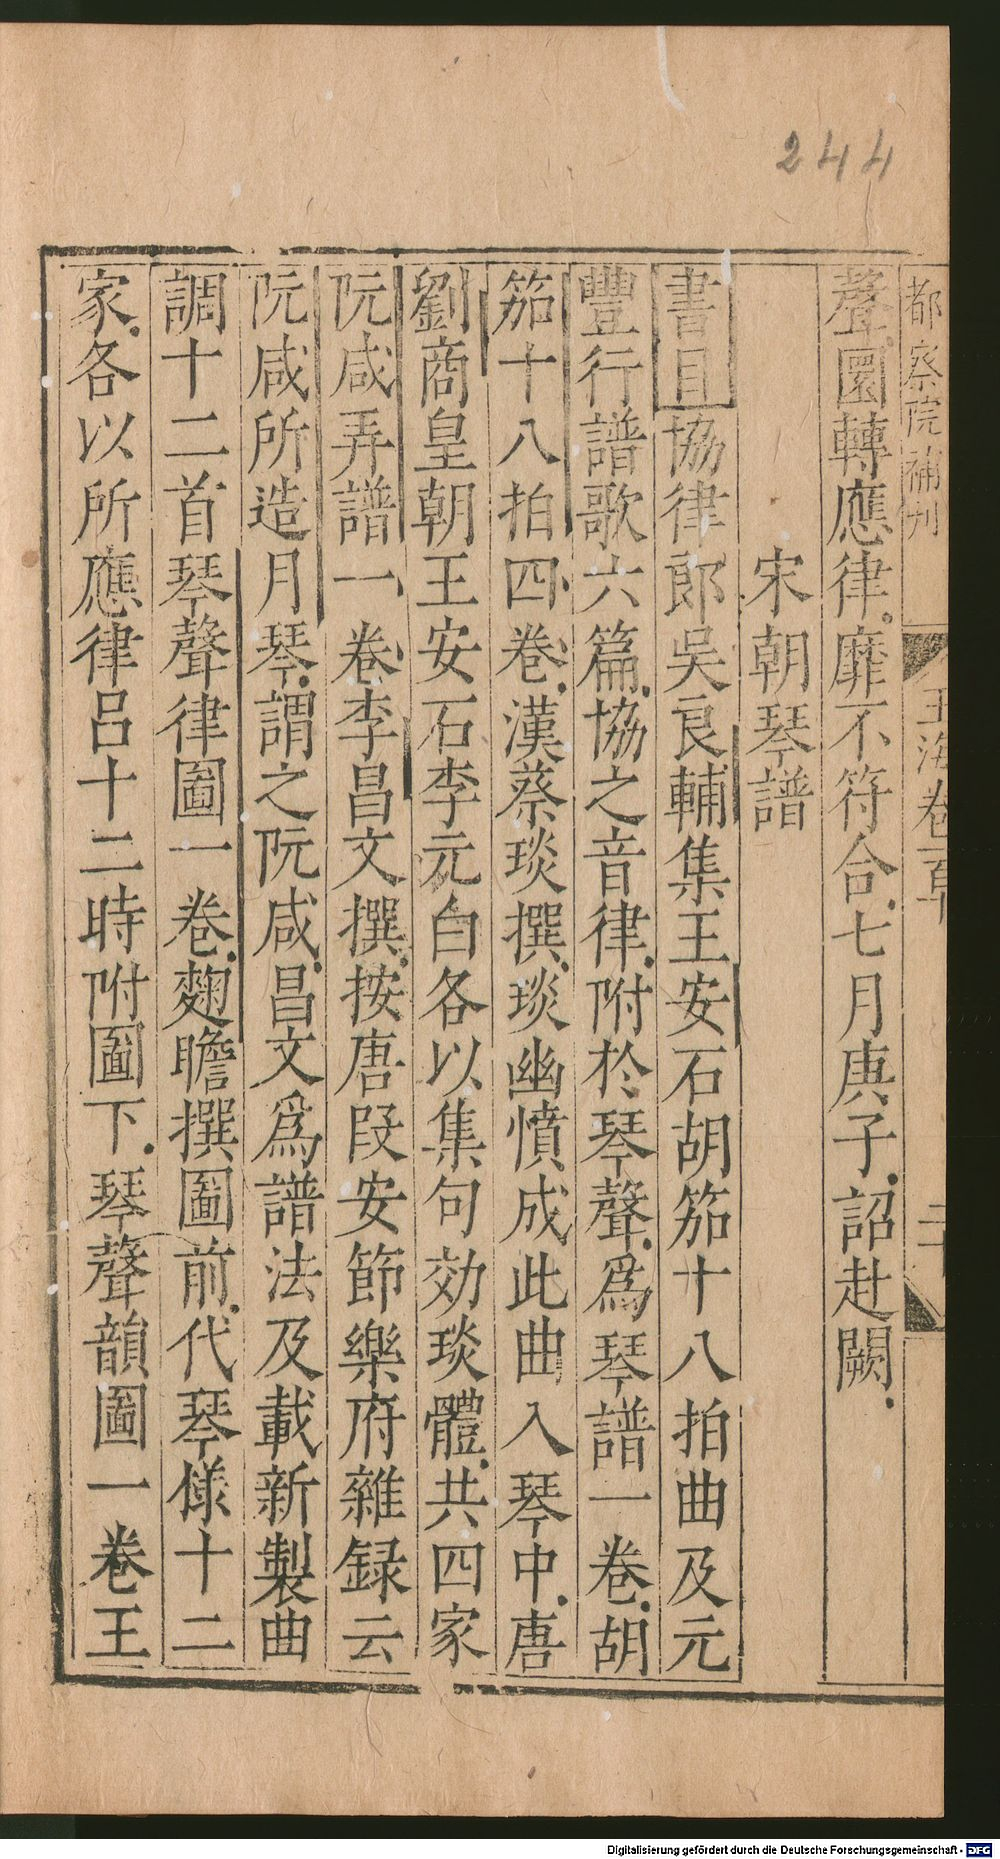 244
都察院補刋
玉海卷一百十
二十
聲圜轉應律靡不符合七月庚子詔赴闕
宋朝琴譜
書目協律郎吳良輔集王安石胡笳十八拍曲及元
豐行譜歌六篇協之音律附於琴聲爲琴譜一卷胡
笳十八拍四卷漢蔡琰撰琰幽憤成此曲入琴中唐
劉商皇朝王安石李元白各以集句効琰體共四家
阮咸弄譜一卷李昌文撰按唐段安節樂府雜録云
阮咸所造月琴謂之阮咸昌文爲譜法及載新製曲
調十二首琴聲律圖一卷麹瞻撰圖前代琴様十二
家各以所應律呂十二時附圖下琴聲韻圖一卷王
Digitalisierung gefördert durch die Deutsche Forschungsgemeinschaft - DFG